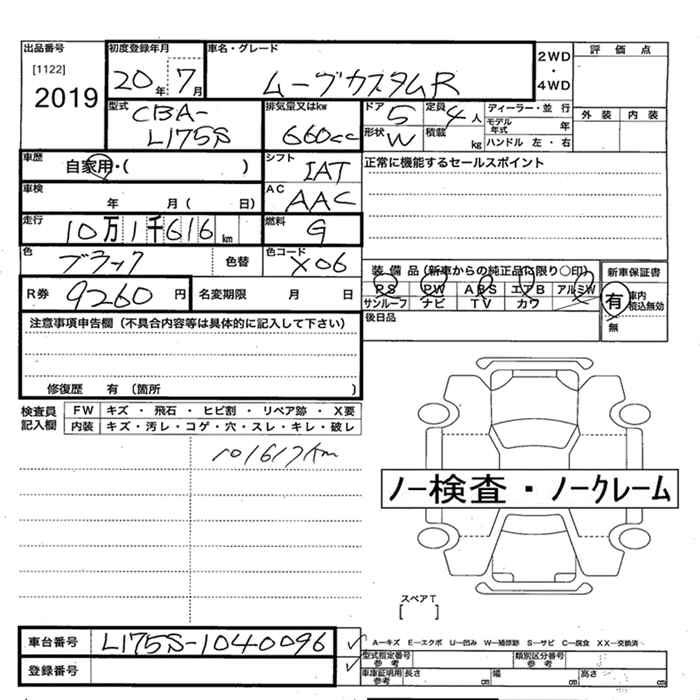 出品番号
[1122]
2019
初度登録年月
20年 7月
車名・グレード
ムーブカスタムR
2WD
・
4WD
評価点
外装 内装
型式
CBA-
L175S
排気量又はkw
660cc
ドア 5
定員 4人
形状 W
積載 kg
ディーラー・並行
モデル年式 年
ハンドル 左・右
車歴
自家用・( )
シフト
IAT
正常に機能するセールスポイント
車検
年 月( 日)
AC
AAC
走行
10万1千616km
燃料
G
色
ブラック
色替
色コード
X06
装備品(新車からの純正品に限り○印)
PS PW ABS エアB アルミW
サンルーフ ナビ TV カワ
新車保証書
有 車内積込無効
無
後日品
R券 9260円
名変期限 月 日
注意事項申告欄(不具合内容等は具体的に記入して下さい)
修復歴 有(箇所 )
検査員記入欄
FW キズ・飛石・ヒビ割・リペア跡・X要
内装 キズ・汚レ・コゲ・穴・スレ・キレ・破レ
101617km
ノー検査・ノークレーム
スペアT
[ ]
車台番号 L175S-1040096
登録番号
A-キズ E-エクボ U-凹み W-補修跡 S-サビ C-腐食 XX-交換済
型式指定番号 参考
類別区分番号 参考
車庫証明用 参考 長さ 幅 高さ